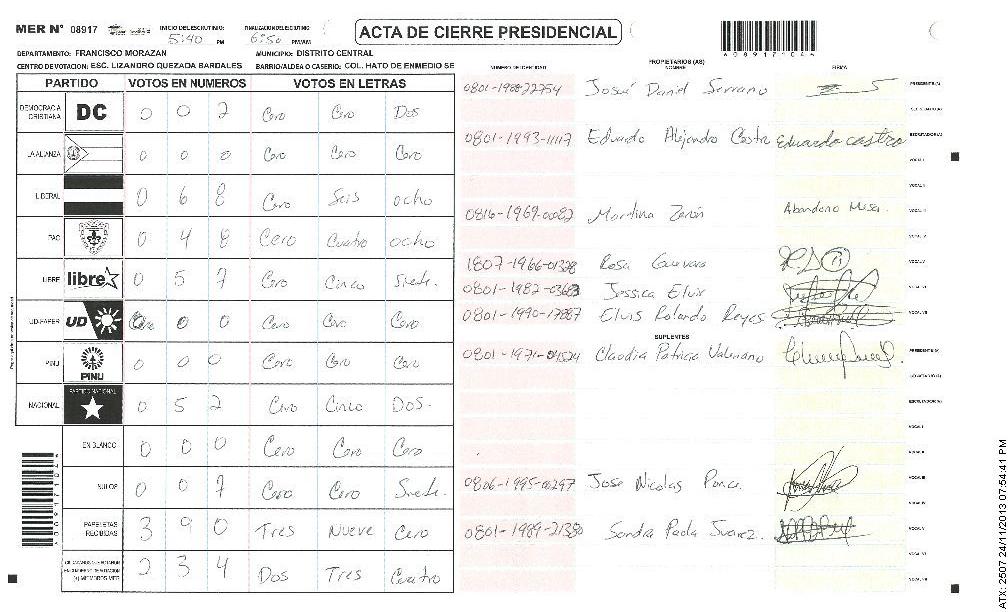 MER N° 08917 INICIO DEL ESCRUTINIO: 5:40 PM FINALIZACION DEL ESCRUTINIO: 6:50 PM/AM ACTA DE CIERRE PRESIDENCIAL
DEPARTAMENTO: FRANCISCO MORAZAN MUNICIPIO: DISTRITO CENTRAL
CENTRO DE VOTACION: ESC. LIZANDRO QUEZADA BARDALES BARRIO/ALDEA O CASERIO: COL. HATO DE ENMEDIO SE
PARTIDO VOTOS EN NUMEROS VOTOS EN LETRAS
DEMOCRACIA CRISTIANA DC 0 0 2 Cero Cero Dos
LA ALIANZA 0 0 0 Cero Cero Cero
LIBERAL 0 6 8 Cero Seis ocho
PAC 0 4 8 Cero Cuatro ocho
LIBRE libre 0 5 7 Cero Cinco Siete.
UD-FAPER UD 0 0 Cero Cero Cero
PINU PINU 0 0 0 Cero Cero Cero
NACIONAL PARTIDO NACIONAL 0 5 2 Cero Cinco Dos.
EN BLANCO 0 0 0 Cero Cero Cero
NULOS 0 0 7 Cero Cero Siete.
PAPELETAS RECIBIDAS 3 9 0 Tres Nueve Cero
2 3 4 Dos Tres Cuatro
NUMERO DE IDENTIDAD PROPIETARIOS (AS) NOMBRE FIRMA
Josué Daniel Serrano PRESIDENTE(A)
SECRETARIO(A)
0801-1993-11117 Eduardo Alejandro Castro Eduardo castro ESCRUTADOR(A)
VOCAL I
VOCAL II
0816-1969-00082 Martina Abandono Mesa. VOCAL III
VOCAL IV
1807-1966-01328 Rosa Guevara VOCAL V
0801-1982- Jessica Elvir VOCAL VI
0801-1990- Elvis Rolando Reyes VOCAL VII
SUPLENTES
0801-1971- Claudia Patricia Valeriano PRESIDENTE(A)
SECRETARIO(A)
ESCRUTADOR(A)
VOCAL I
VOCAL II
0806-1995-00297 Jose Nicolas Ponce VOCAL III
VOCAL IV
0801-1989- Sandra Paola Suarez. VOCAL V
VOCAL VI
VOCAL VII
ATX: 2507 24/11/2013 07:54:41 PM